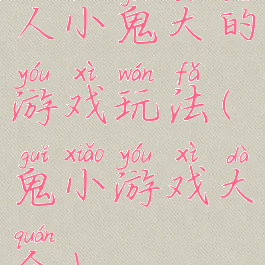 人小鬼大的
yóu xì wán fǎ
游戏玩法(
guǐ xiǎo yóu xì dà
鬼小游戏大
quán
全)